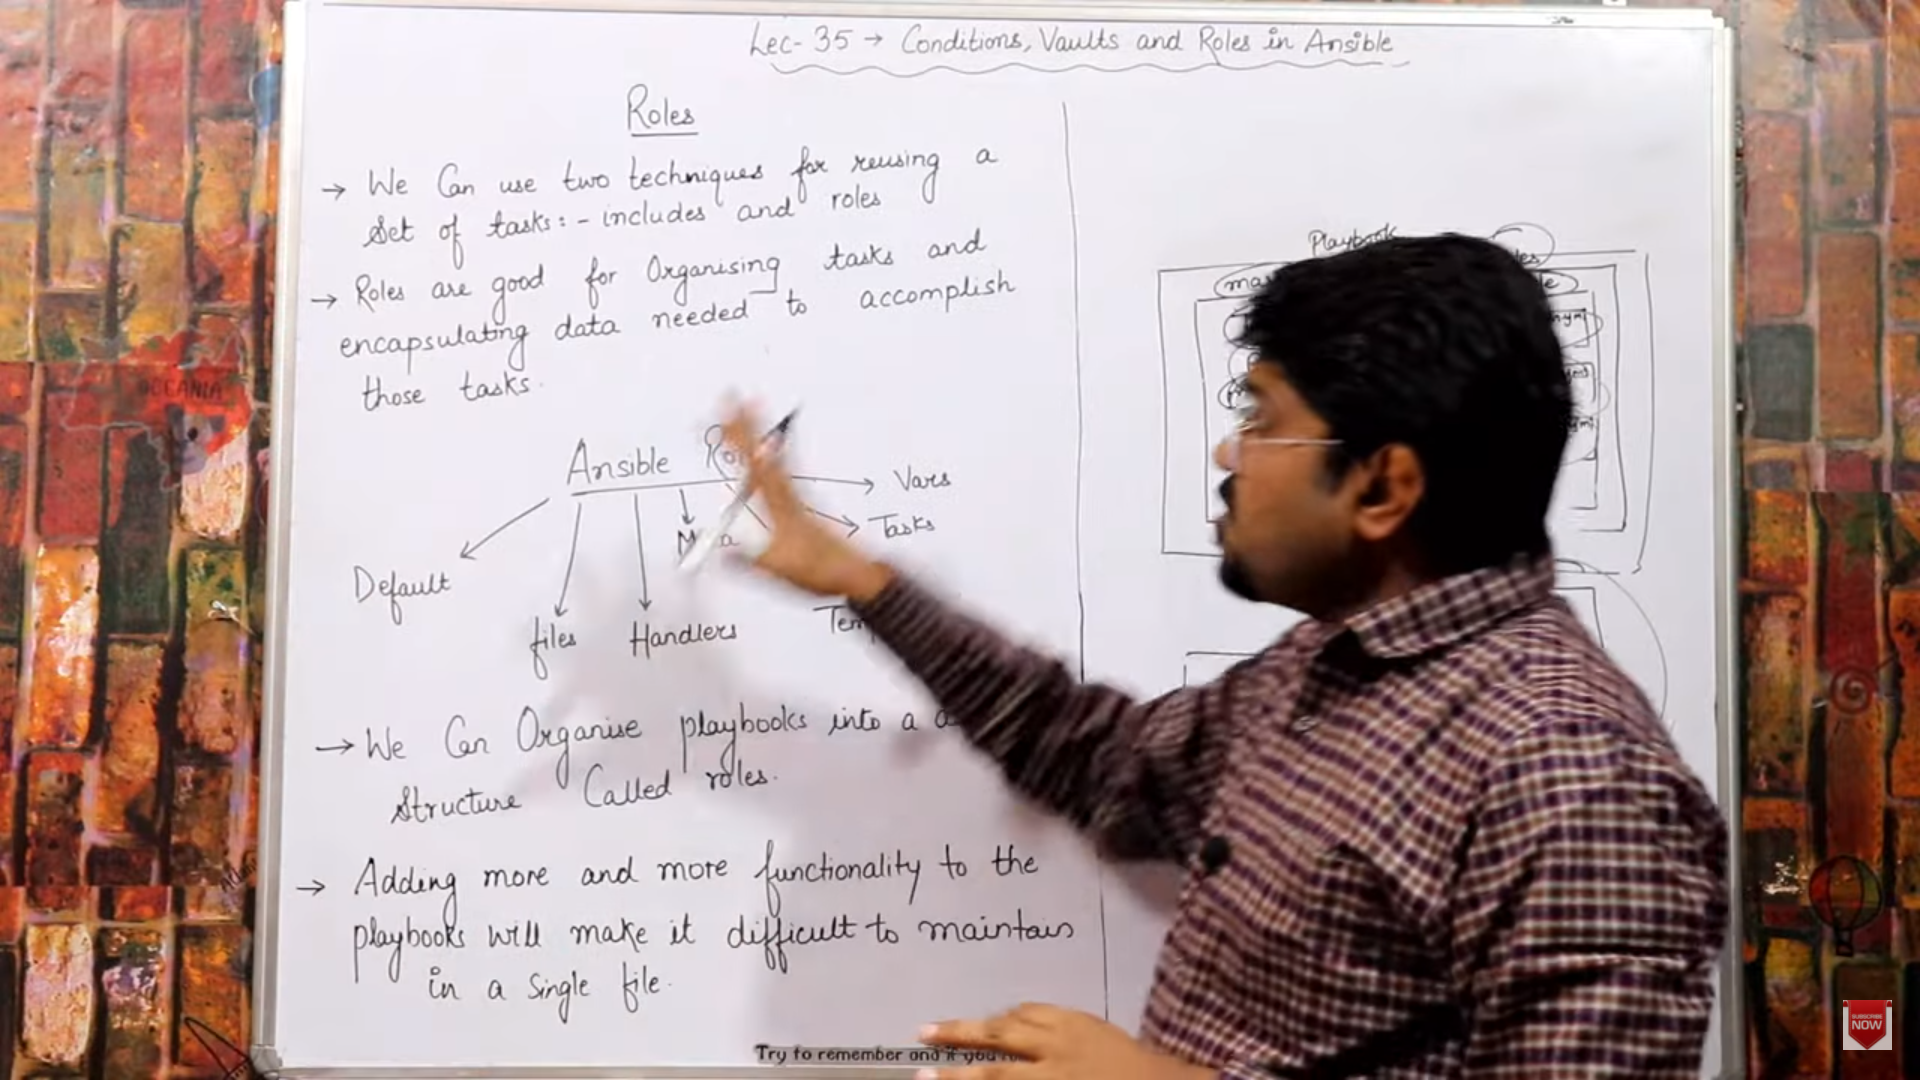 Lec- 35 → Conditions, Vaults and Roles in Ansible
Roles
→ We Can use two techniques for reusing a
Set of tasks: - includes and roles
→ Roles are good for Organising tasks and
encapsulating data needed to accomplish
those tasks.
Ansible
Vars
Tasks
Default
files Handlers
→ We Can Organise playbooks into a
Structure Called roles.
→ Adding more and more functionality to the
playbooks will make it difficult to maintain
in a Single file.
Playbook
Try to remember and if you
OCEANIA
SUBSCRIBE
NOW